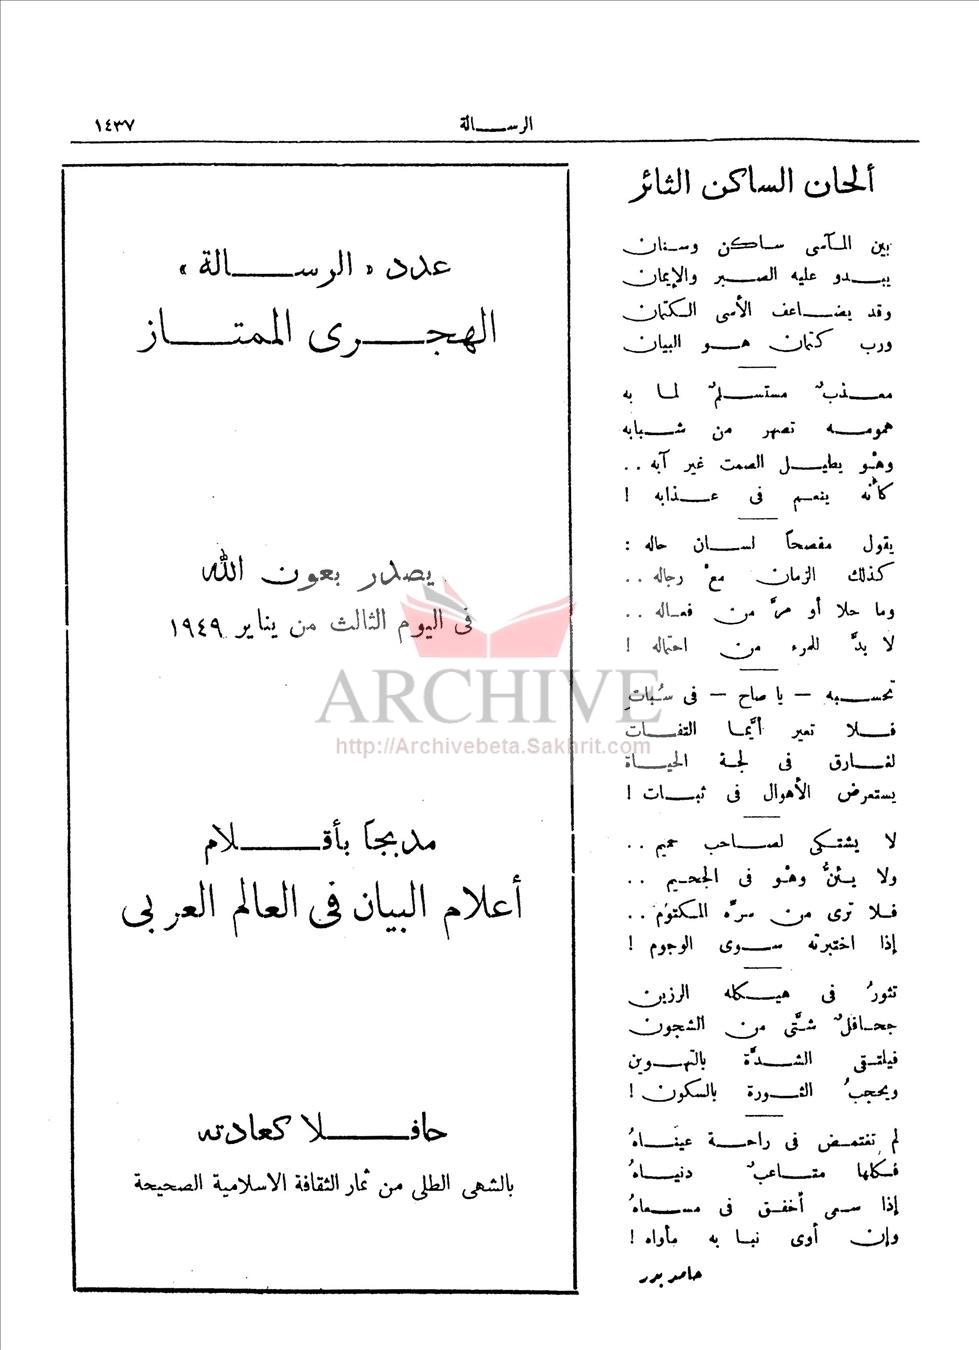 الرسالة
١٤٣٧
ألحان الساكن الثائر
بين المآسى ساكن وسنان
يبدو عليه الصبر والإيمان
وقد يضاعف الأسى الكتمان
ورب كتمان هو البيان
معذبٌ مستسلمٌ لما به
همومه تصهر من شبابه
وهْو يطيل الصمت غير آبه ..
كأنه ينعم فى عذابه !
يقول مفصحاً لسان حاله :
كذلك الزمان معْ رجاله ..
وما حلا أو مرَّ من فعاله ..
لا بدَّ للمرء من احتماله !
تحسبه – يا صاح – فى سُبات
فلا تعير أيَّما التفات
لغارق فى لجة الحياة
يستعرض الأهوال فى ثبات !
لا يشتكى لصاحب حميم ..
ولا يئنُّ وهْو فى الجحيم ..
فلا ترى من سرِّه المكتوم ..
إذا اختبرته سوى الوجوم !
تثورُ فى هيكله الرزين
جحافلٌ شتَّى من الشجون
فيلتقى الشدَّة بالتهوين
ويحجبُ الثورة بالسكون !
لم تغتمض فى راحة عيناهُ
فكلها متاعبٌ دنياهُ
إذا سعى أخفق فى مسعاهُ
وإن أوى نبا به مأواه !
حامد بدر
عدد « الرسالة »
الهجرى الممتاز
يصدر بعون الله
فى اليوم الثالث من يناير ١٩٤٩
مدبجاً بأقلام
أعلام البيان فى العالم العربى
حافلا كعادته
بالشهى الطلى من ثمار الثقافة الاسلامية الصحيحة
ARCHIVE
http://Archivebeta.Sakhrit.com